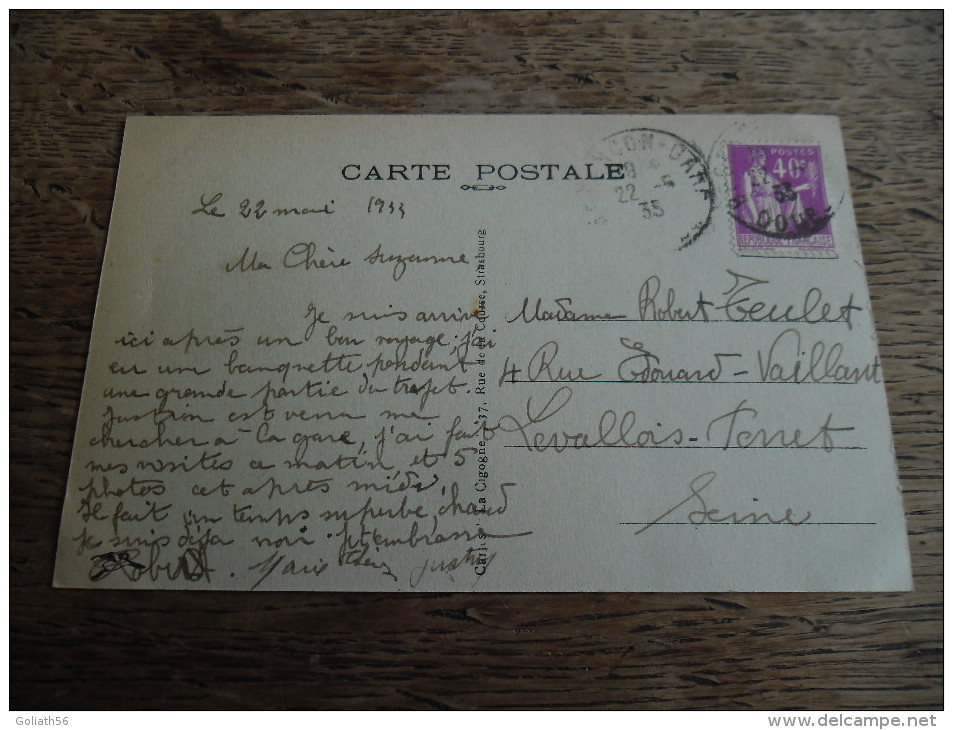 CARTE POSTALE
Le 22 mai 1933
Ma Chère Suzanne
Je suis arrivé
ici après un bon voyage, j'ai
eu une banquette pendant
une grande partie du trajet.
Justin est venu me
chercher à la gare, j'ai fait
mes visites ce matin, et 5
photos cet après midi,
Il fait un temps superbe, chaud
je suis déjà noir. Je t'embrasse
Robert. Marie Justin
Cartes "La Cigogne", 37, Rue de la Course, Strasbourg
ÇON-GARE
19
22 -5
33
POSTES
40c
22
33
DOUBS
REPUBLIQUE FRANÇAISE
Madame Robert Teulet
4 Rue Edouard-Vaillant
Levallois-Perret
Seine
Goliath56
www.delcampe.net